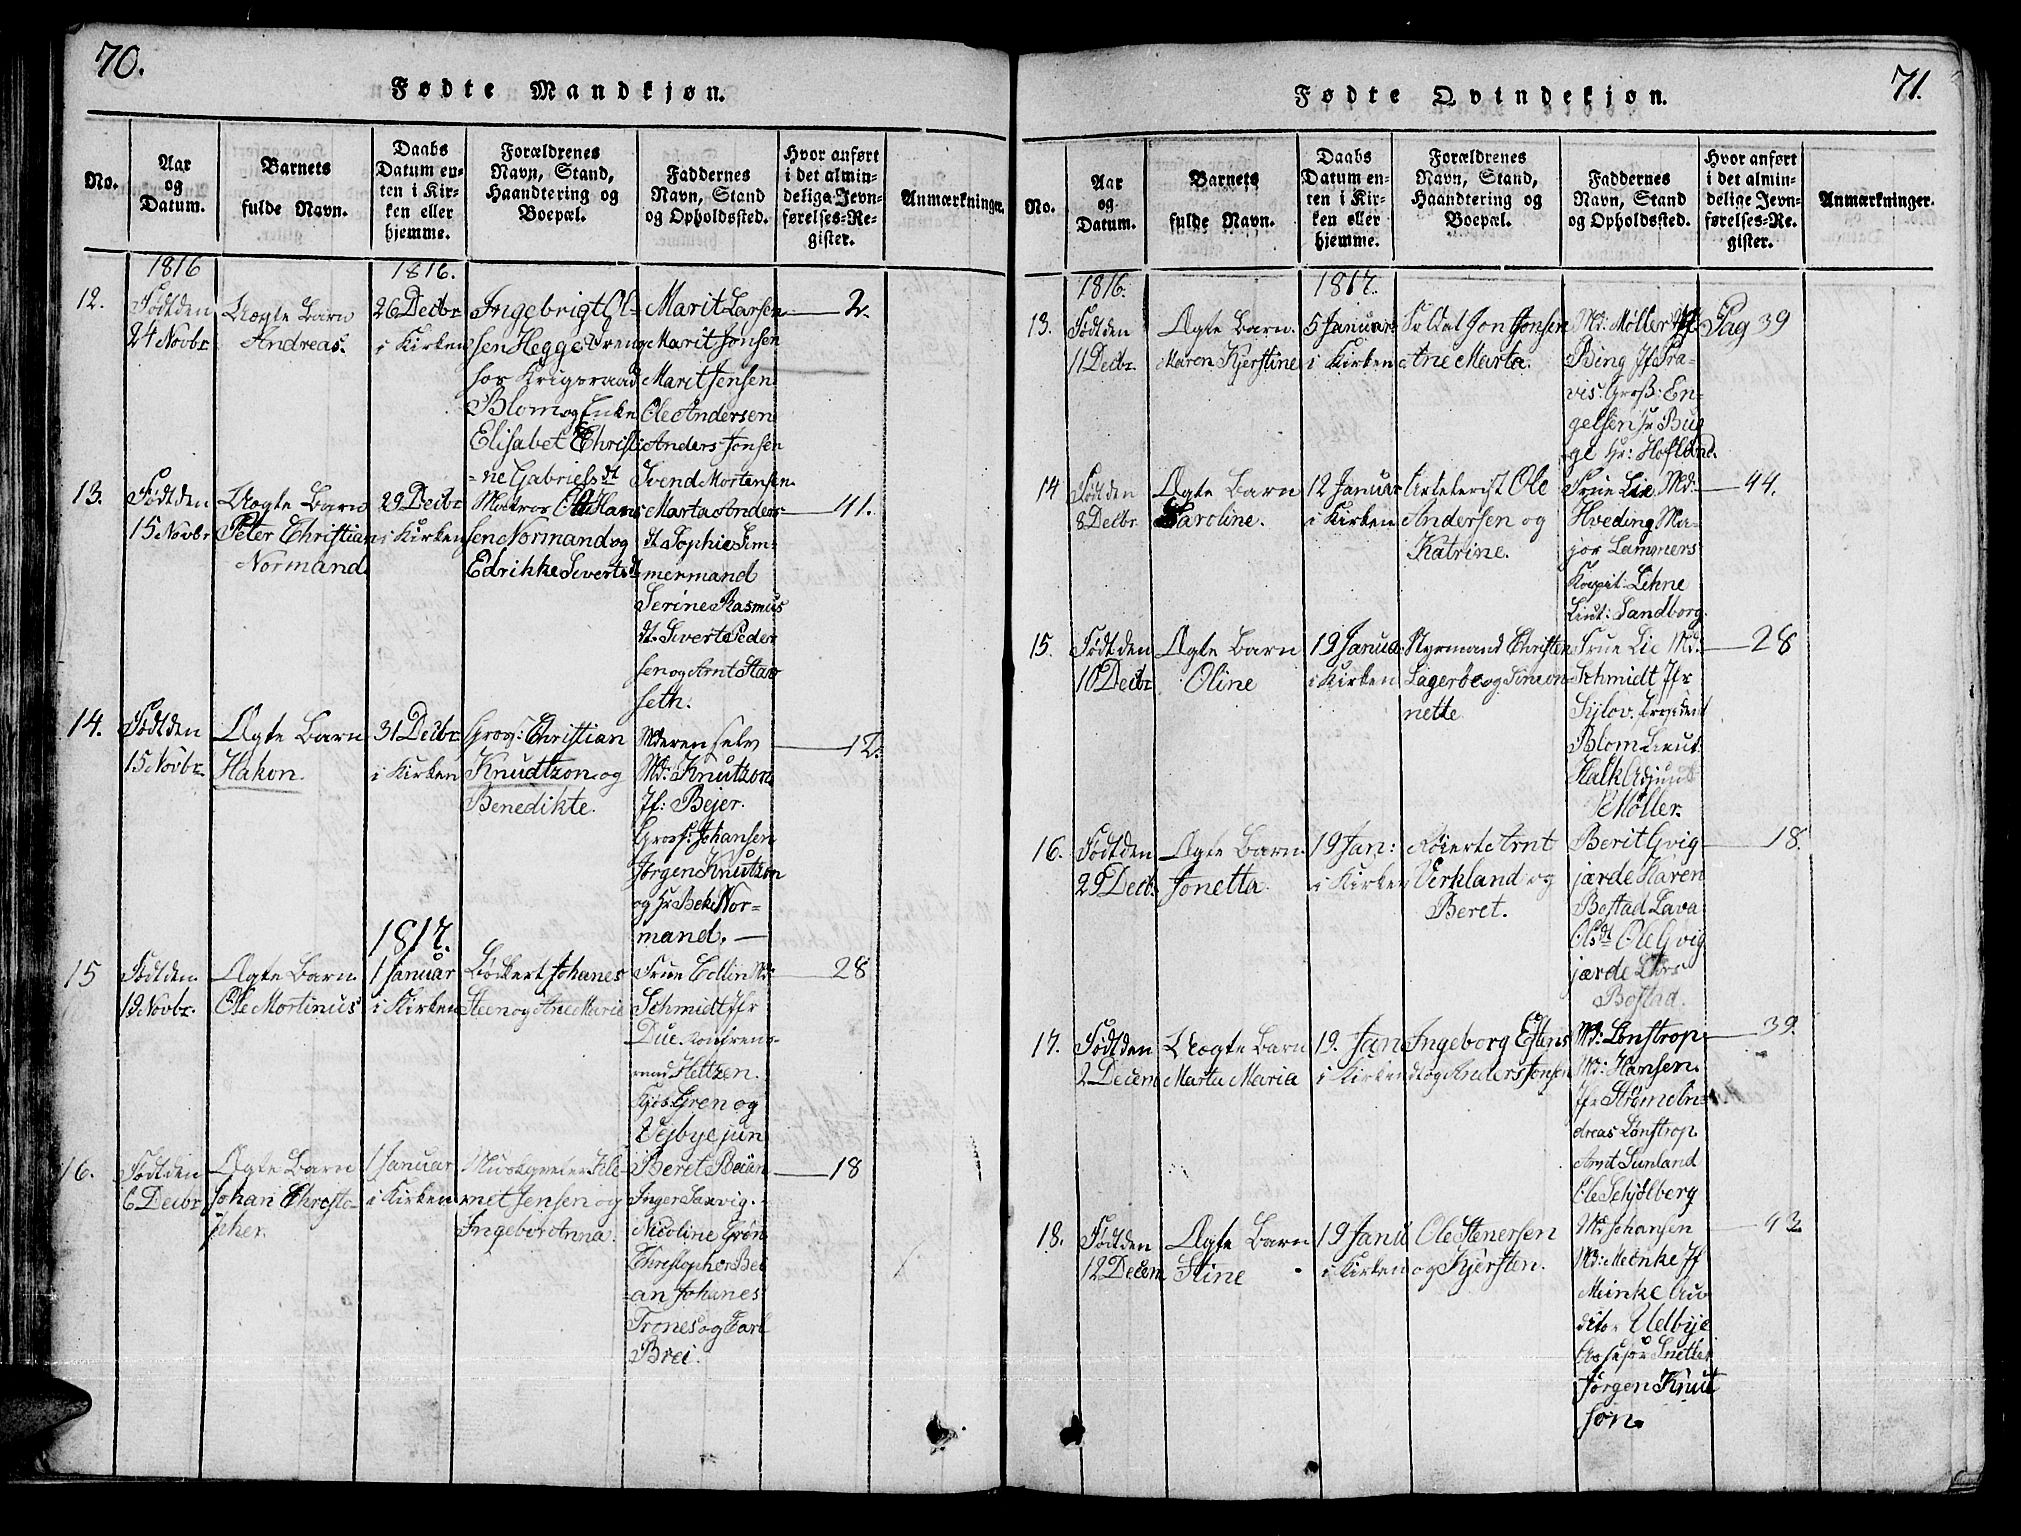 70.
Fødte Mandkjøn.
No.
Aar
og
Datum.
Barnets
fulde Navn.
Daabs
Datum en-
ten i Kir-
ken eller
hjemme.
Forældrenes
Navn, Stand,
Haandtering og
Boepæl.
Faddernes
Navn, Stand
og Opholdssted.
Hvor anført
i det almin-
delige Jevn-
førelses-Re-
gister.
Anmærkninger.
1816
12.
Født den
24 Novbr
Uægte Barn
Andreas.
1816.
26 Decbr
i Kirken
Ingebrigt Ol-
sen Hegge Dreng
hos Krigsraad
Blom og Enke
Elisabet Christi
=ne Gabrielsdt
Marit Larsen
Marit Jonsen
Marit Jensen
Ole Andersen
Anders Jonsen
Svend Mortensen
2.
13.
Født den
15 Novbr
Uægte Barn
Peter Christian
Normand.
29 Decbr
i Kirken
Matros Ole Hans
sen Normand og
Edrikke Sivertsdt
Marta Anders-
dt. Sophie Tim-
mermand
Serine Rasmus
dt. Sivert Peder
sen og Arnt Stav
seth.
41.
14.
Født den
15 Novbr.
Ægte Barn
Hakon.
31 Decbr
i Kirken
Gross: Christian
Knudtzon og
Benedikte.
Mderen selv
Md: Knutzon
Jf: Bejer.
Gross: Johansen
Jørgen Knutzon
og Hr Bek Nor-
mand.
12.
1817.
15
Født den
19 Novbr.
Ægte Barn
Ole Mortinus
1 Januar
i Kirken
Bødkert Johanes
Steen og Ane Marie
Frue Collin Md:
Schmidt Jfr
Due. Konfrens-
raad Heltzen.
Kjøb: Gren og
Vejbye jun
28
16.
Født den
6 Decbr
Ægte Barn
Johan Christo-
pher.
1 Januar
i Kirken
Muskeneter Kle-
met Jensen og
Ingebor Anna.
Beret Beian
Inger Saxvig.
Nicoline Grøn
Christopher Bei
=an Johanes
Trones og Carl
Brei.
18
71.
Fødte Qvindekjøn.
No.
Aar
og
Datum.
Barnets
fulde Navn.
Daabs
Datum en-
ten i Kir-
ken eller
hjemme.
Forældrenes
Navn, Stand,
Haandtering og
Boepæl.
Faddernes
Navn, Stand
og Opholdssted.
Hvor anført
i det almin-
delige Jevn-
førelses-Re-
gister.
Anmærkninger.
1816.
13.
Født den
11 Decbr.
Ægte Barn.
Maren Kjerstine
1817.
5 Januar
i Kirken
Soldat Jon Jonsen
Ane Marta.
Md: Møller
Bing Jf Pra-
vis. Gross: En-
gelsen Hr Bug
ge Hr: Hofland.
Pag 39
14
Født den
8 Decbr
Ægte Barn
Karoline.
12 Januar
i Kirken
Artelerist Ole
Andersen og
Katrine.
Frue Lie Md:
Hveding Ma-
jor Lammers
Kapit: Lehne
Lieut: Sandborg.
44.
15.
Født den
10 Decbr
Ægte Barn
Oline
19 Janua
i Kirken
Styrmand Christen
Lagerbe og Simon-
nette
Frue Lie Md:
Schmidt Jfr
Sylov. President
Blom Lieut:
Halk Adjunt
Møller.
28
16.
Født den
29 Decb.
Ægte Barn.
Jonetta.
19 Jan:
i Kirken
Røiert Arnt
Verkland og
Beret.
Berit Gvig
jærde Karen
Bostad Lava
Olsdt Ole Gvig
jærde Lars
Bostad.
18.
17.
Født den
2 Decem
Uægte Barn
Marta Maria
19. Jan
i Kirken
Ingeborg Estens
dt og Anders Jonsen
Md: Lønstrop
Md: Hansen.
Jfr Strøm
dreas Lønstrop.
Arnt Sunland
Ole Schjølberg
39.
18.
Født den
12 Decem
Ægte Barn
Stine
19 Janu
i Kirken
Ole Stenersen
og Kjersten.
Md Johansen
Md: Meinke Jf
Meinke Au
ditør Uelbye
Assesor Snetler
Jørgen Knut
son.
43